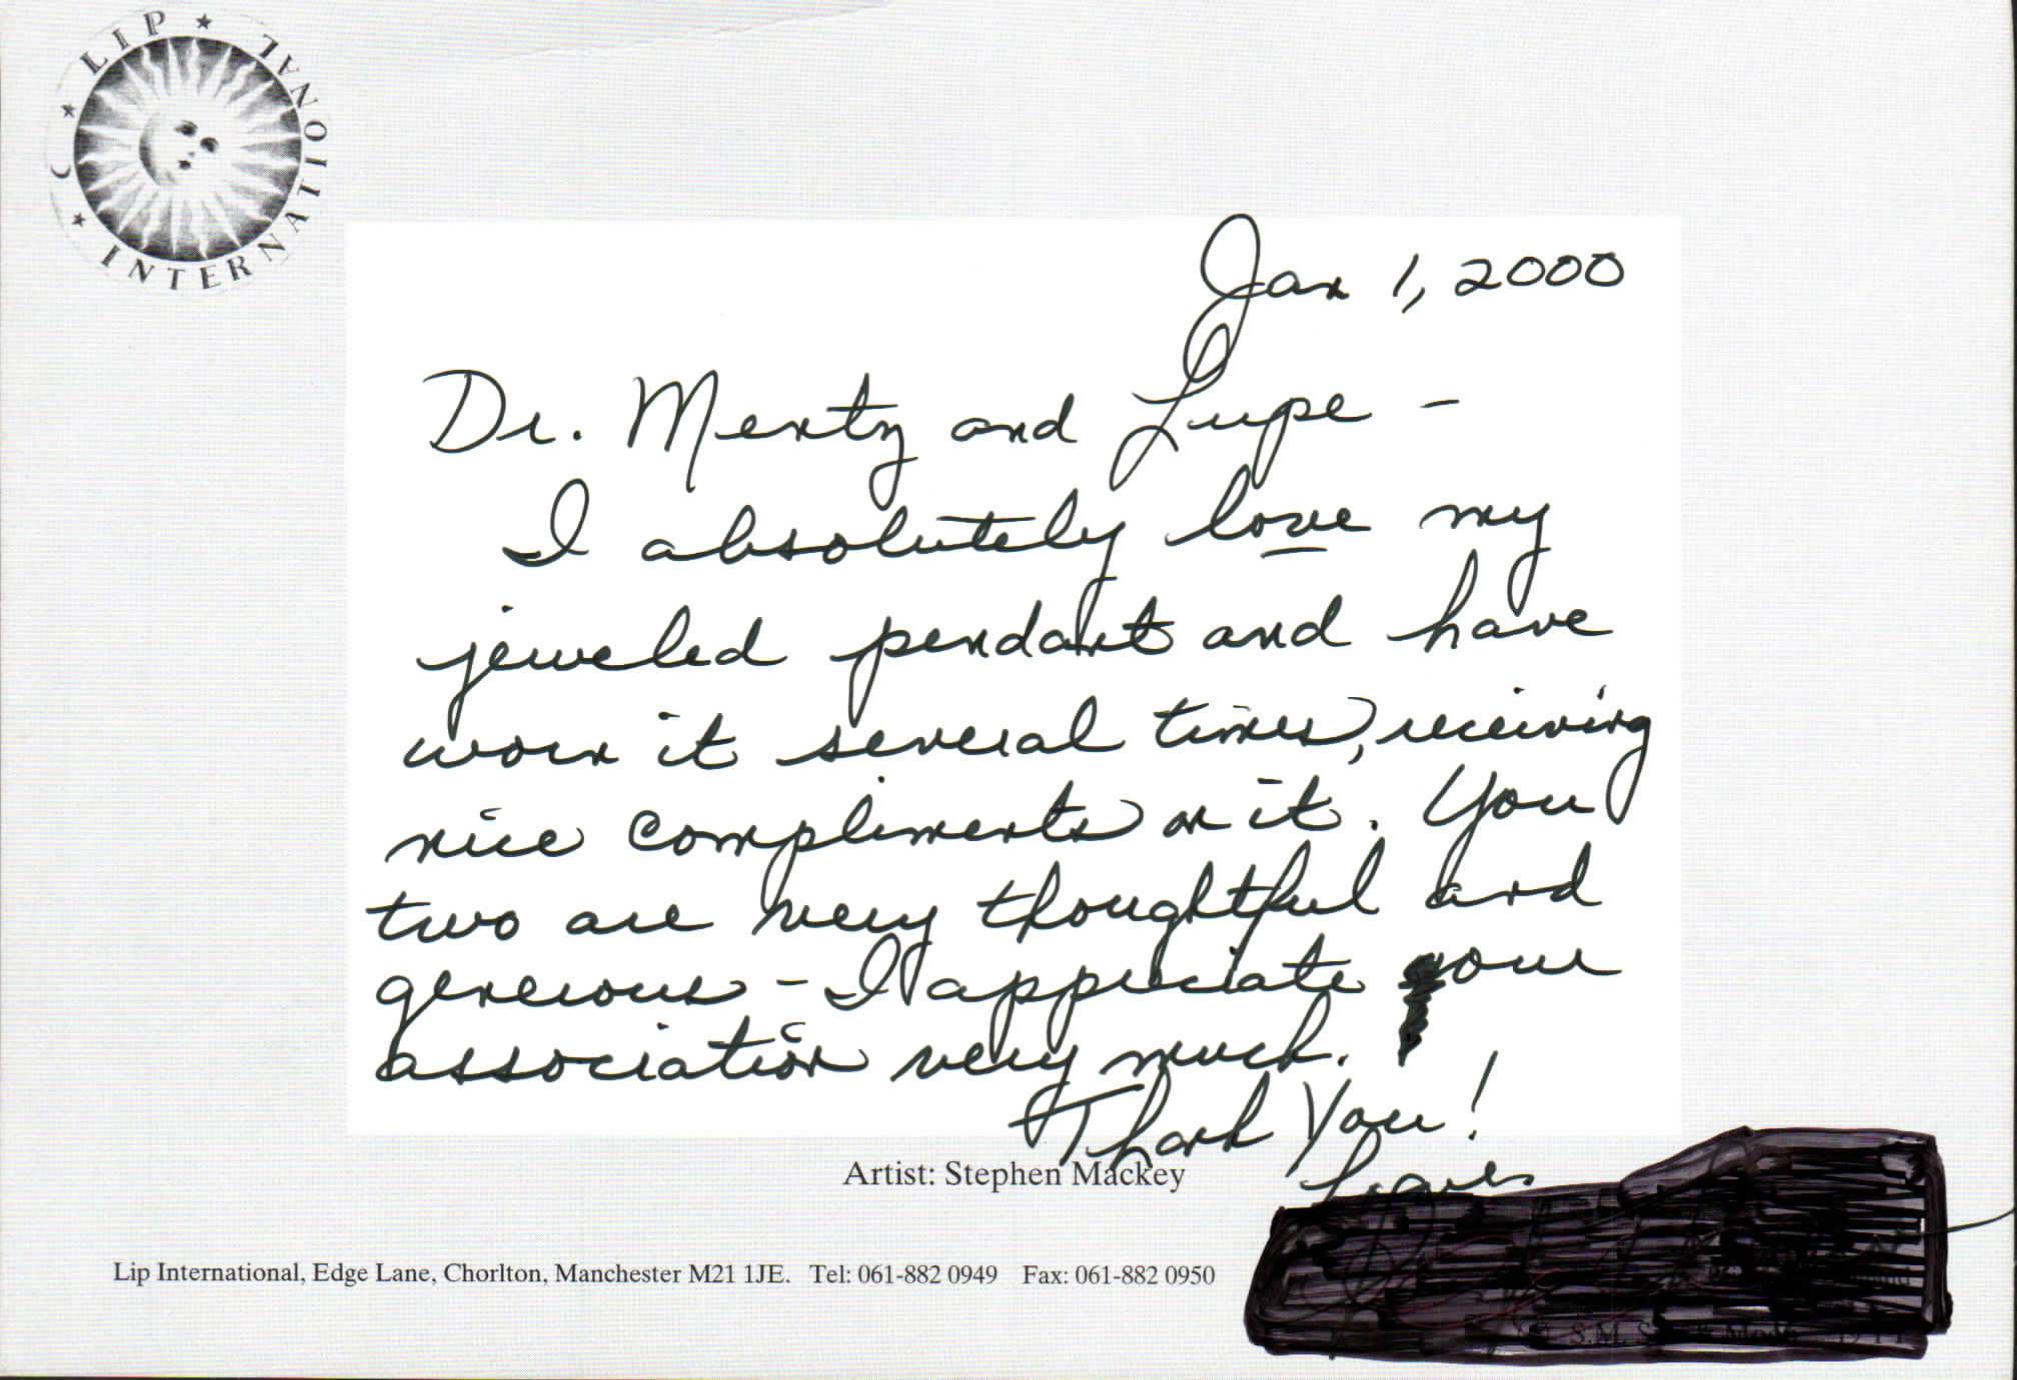 C * LIP * INTERNATIONAL *
Jan 1, 2000
Dr. Mertz and Lupe -
I absolutely love my
jeweled pendant and have
worn it several times, receiving
nice compliments on it. You
two are very thoughtful and
generous - I appreciate your
association very much.
Thank You!
Artist: Stephen Mackey
Lip International, Edge Lane, Chorlton, Manchester M21 1JE. Tel: 061-882 0949 Fax: 061-882 0950